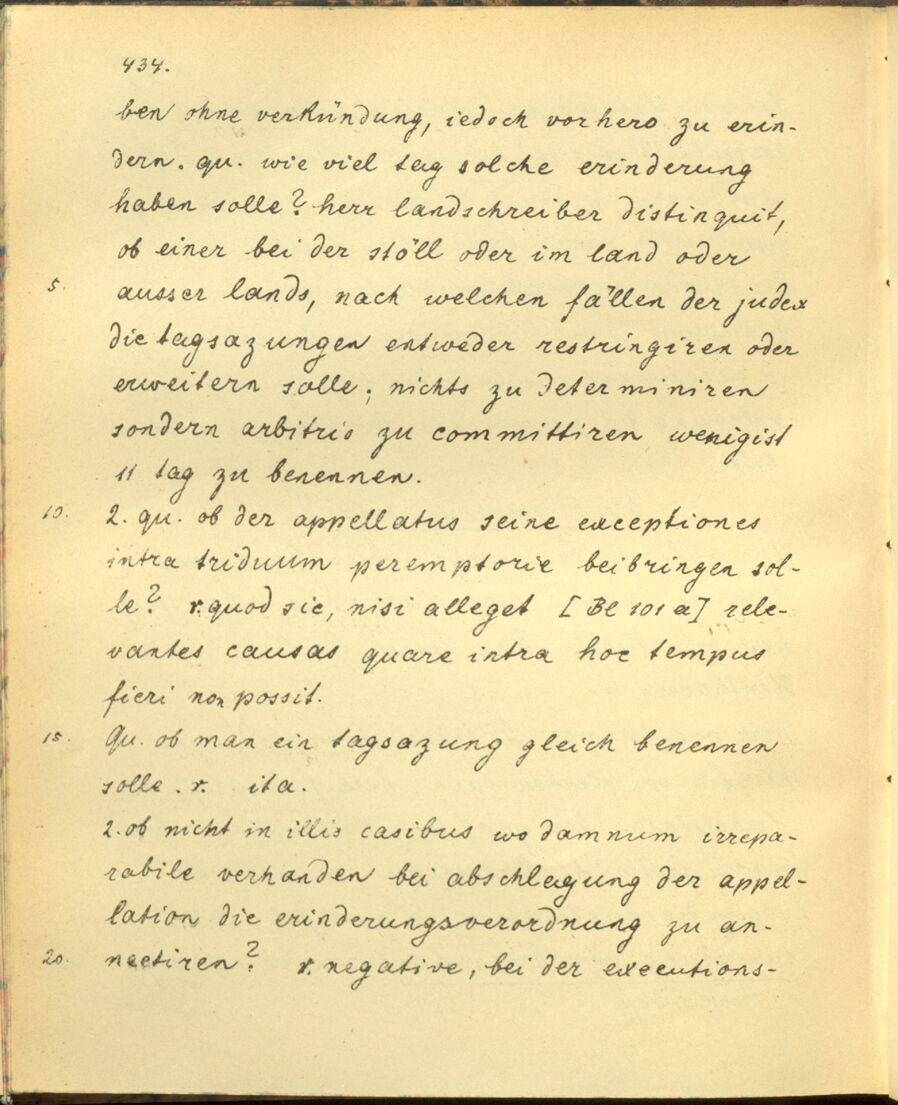 434.
ben ohne verkündung, iedoch vorhero zu erin-
dern. qu. wie viel tag solche erinderung
haben solle? herr landschreiber distinquit,
ob einer bei der stöll oder im land oder
5. ausser lands, nach welchen fällen der judex
die tagsazungen entweder restringiren oder
erweitern solle; nichts zu determiniren
sondern arbitrio zu committiren wenigist
11 tag zu benennen.
10. 2. qu. ob der appellatus seine exceptiones
intra triduum peremptorie beibringen sol-
le? r. quod sic, nisi alleget [Bl 101 a] rele-
vantes causas quare intra hoc tempus
fieri non possit.
15. Qu. ob man ein tagsazung gleich benennen
solle. r. ita.
2. ob nicht in illis casibus wo damnum irrepa-
rabile verhanden bei abschlagung der appel-
lation die erinderungsverordnung zu an-
20. nectiren? r. negative, bei der executions-